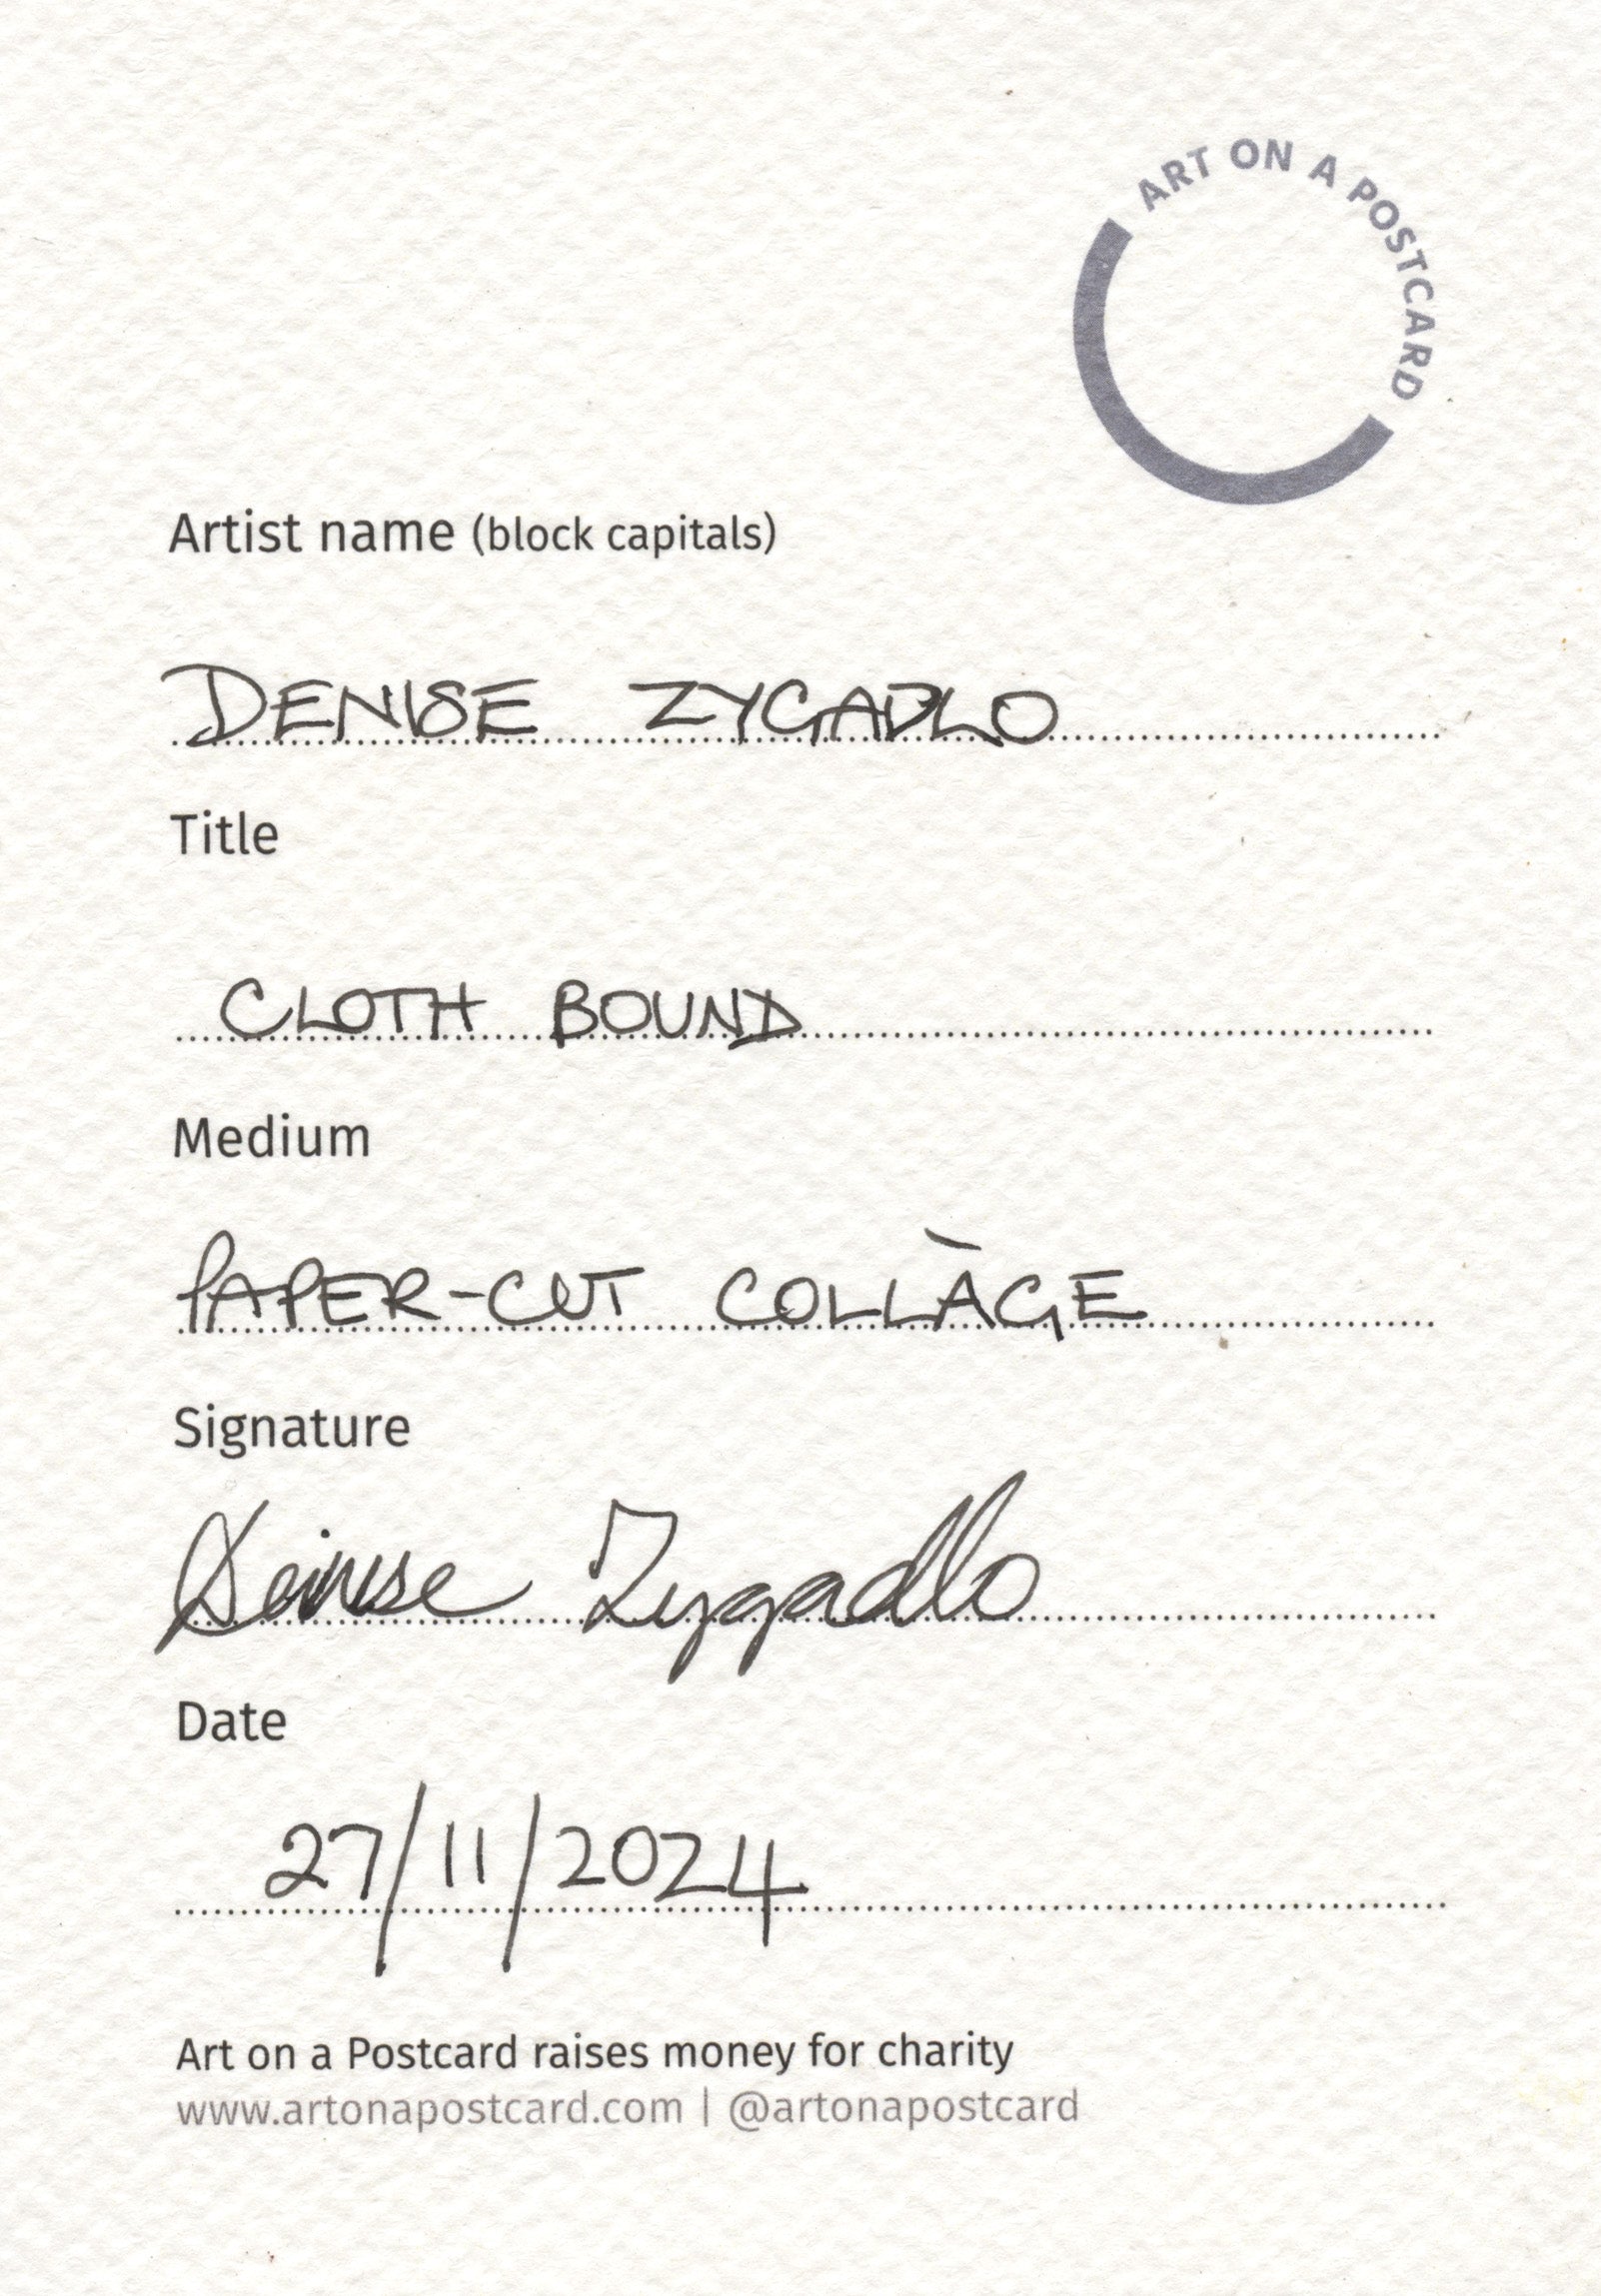 ART ON A POSTCARD
Artist name (block capitals)
DENISE ZYGADLO
Title
CLOTH BOUND
Medium
PAPER-CUT COLLÀGE
Signature
Denise Zygadlo
Date
27/11/2024
Art on a Postcard raises money for charity
www.artonapostcard.com | @artonapostcard